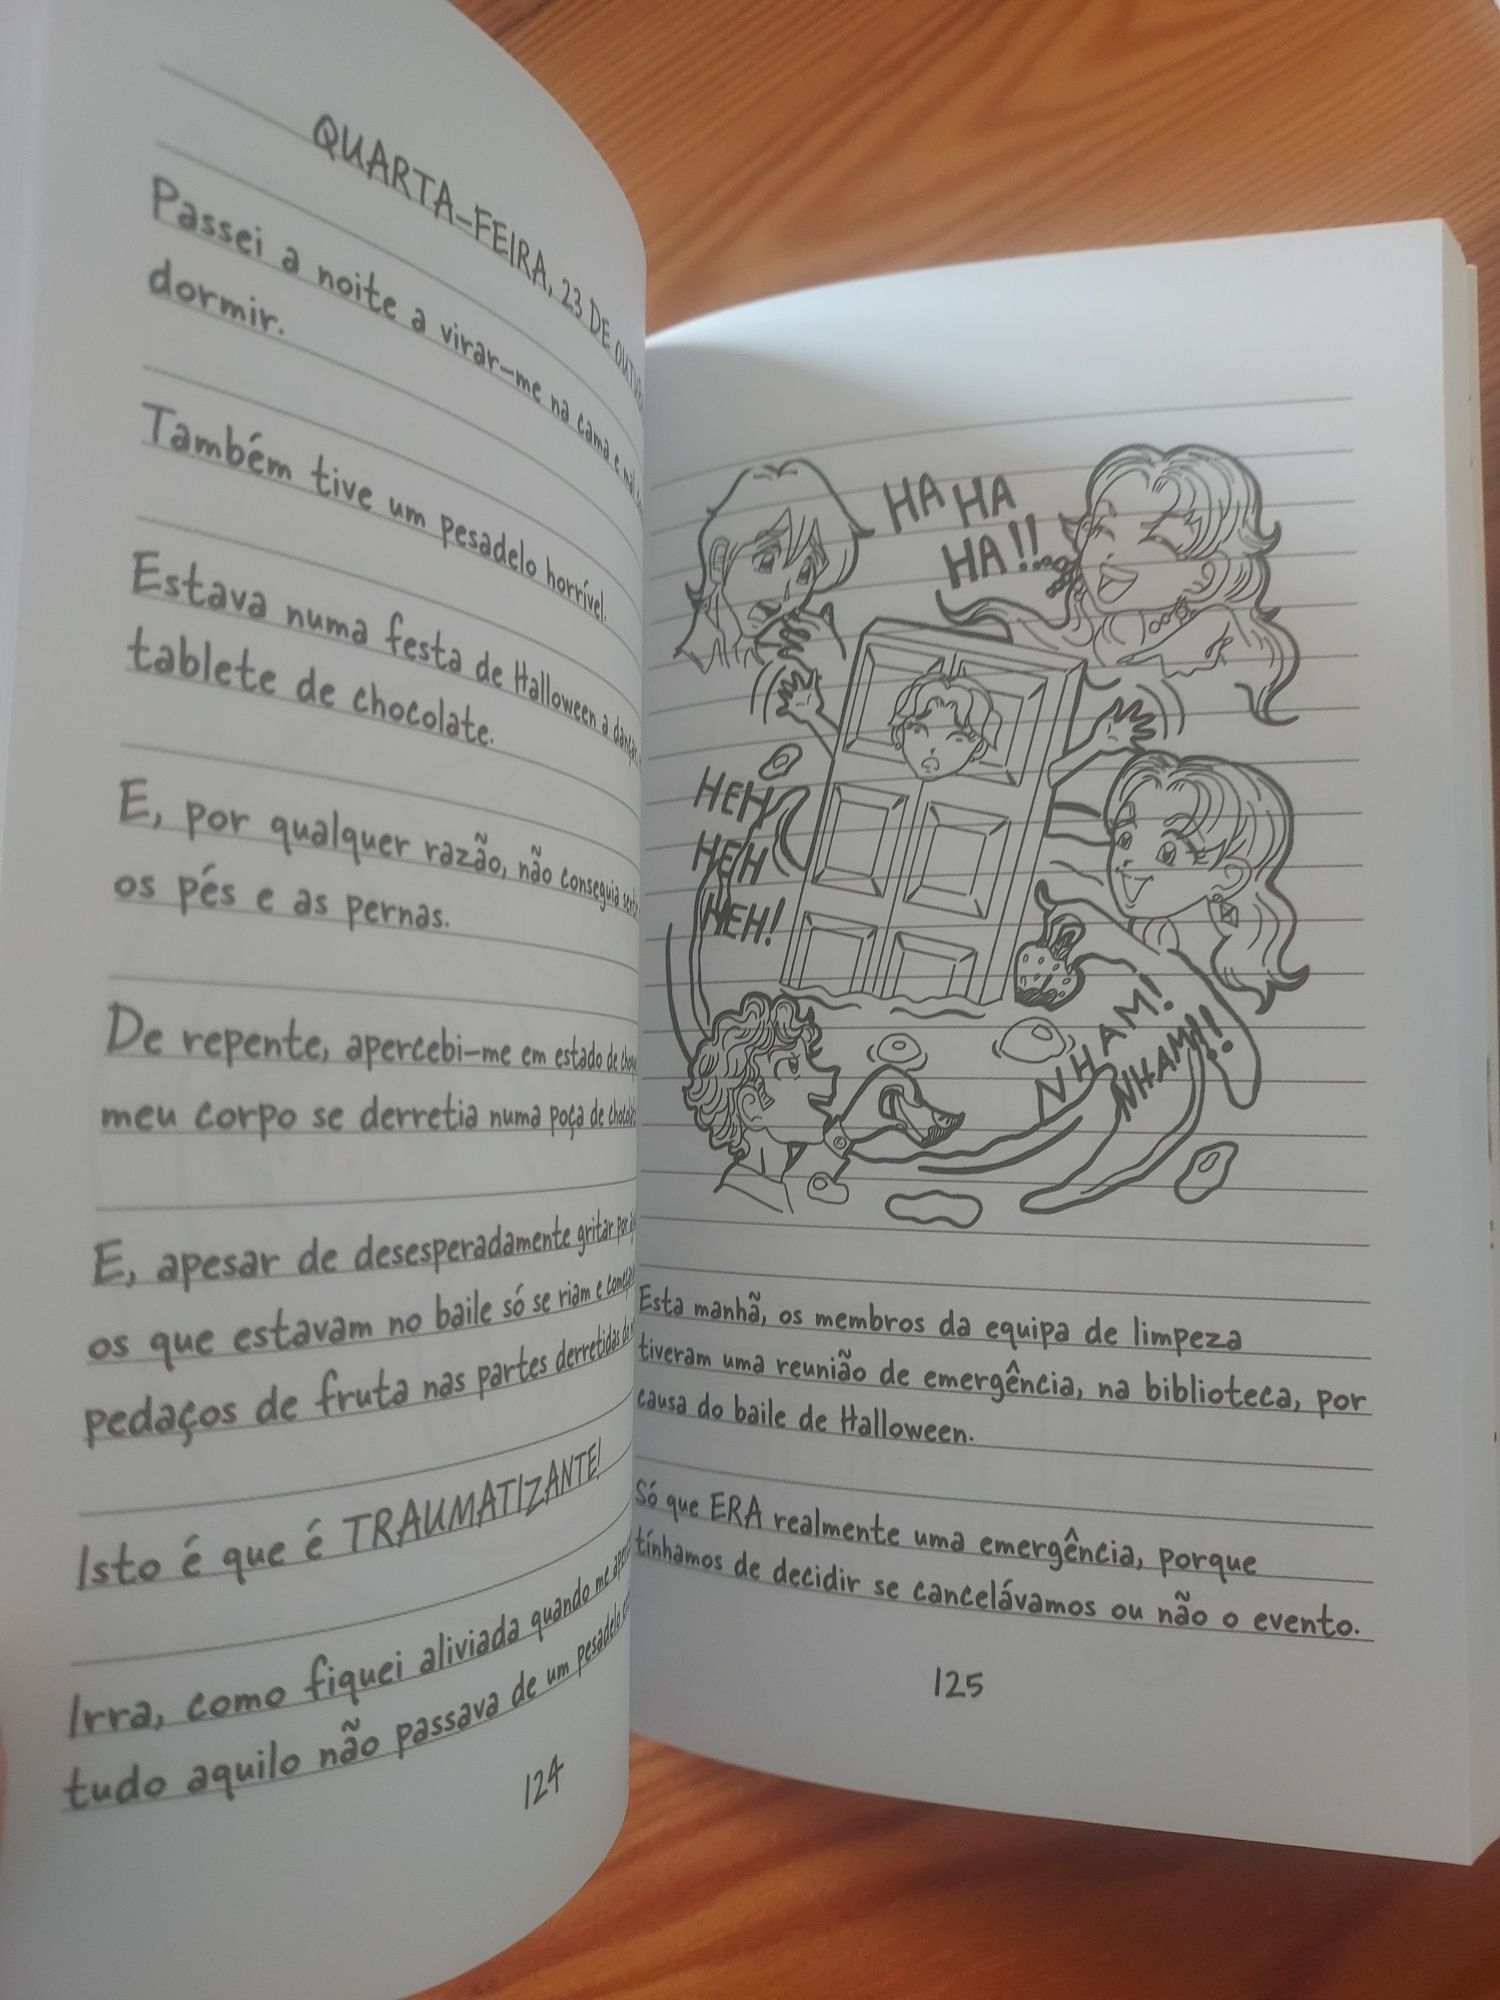 QUARTA-FEIRA, 23 DE
Passei a noite a virar-me na cama e mal
dormir.
Também tive um pesadelo horrível.
Estava numa festa de Halloween a
tablete de chocolate.
E, por qualquer razão, não conseguia
os pés e as pernas.
De repente, apercebi-me em estado de
meu corpo se derretia numa poça de
E, apesar de desesperadamente gritar por
os que estavam no baile só se riam e
pedaços de fruta nas partes derretidas
Isto é que é TRAUMATIZANTE!
Irra, como fiquei aliviada quando me
tudo aquilo não passava de um pesadelo
124
HA HA
HA!!
HEH
HEH
HEH!
NHAM!
NHAM!!
Esta manhã, os membros da equipa de limpeza
tiveram uma reunião de emergência, na biblioteca, por
causa do baile de Halloween.
Só que ERA realmente uma emergência, porque
tínhamos de decidir se cancelávamos ou não o evento.
125